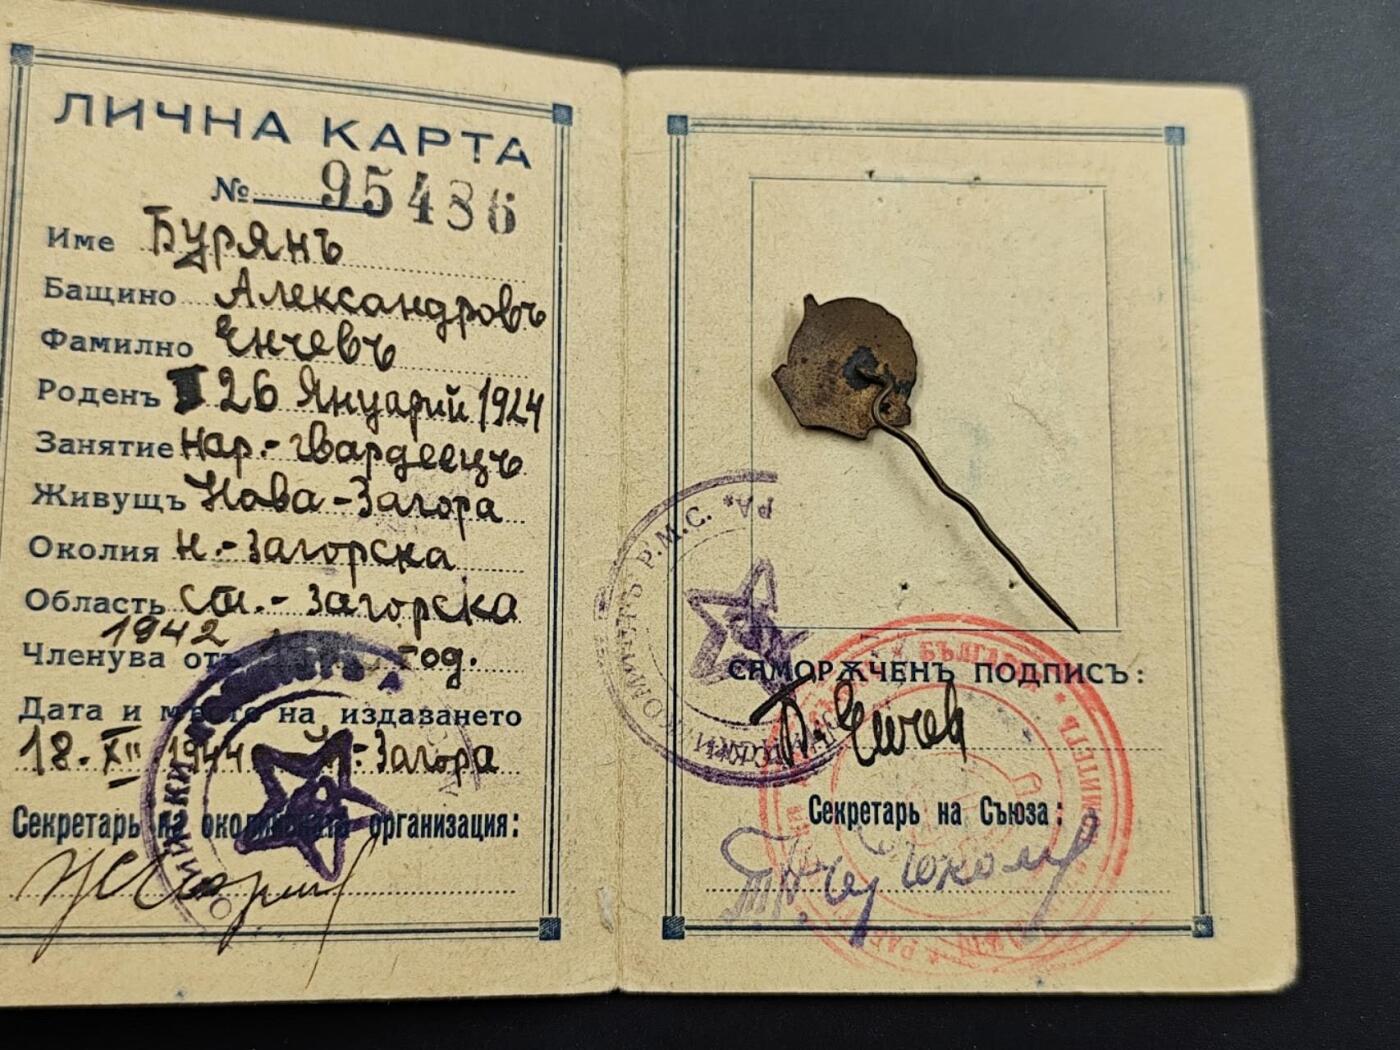 ЛИЧНА КАРТА
№ 95486
Име Бурянъ
Бащино Александровъ
Фамилно Енчевъ
Роденъ 26 Януарий 1924
Занятие нар.-гвардеецъ
Живущъ Нова-Загора
Околия Н.-Загорска
Область ст.-Загорска
Членува отъ 1942 год.
Дата и место на издаването
18.XII 1944 Н.-Загора
Секретарь на околийската организация:
Р.М.С. * РА
САМОРѪЧЕНЪ ПОДПИСЪ:
Б. Енчев
Секретарь на Съюза: